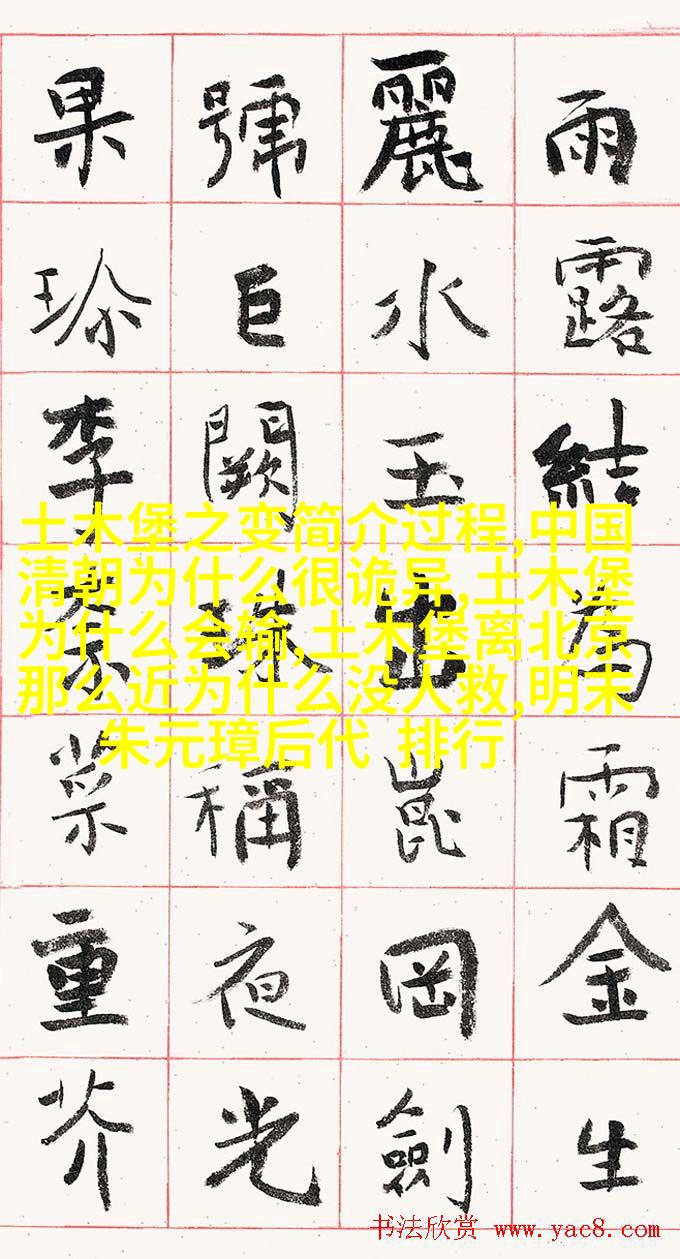 雨露結為霜金生
麗水玉出崑岡劍
號巨闕珠稱夜光
果珍李柰菜重芥
土木堡之变简介过程,中国
清朝为什么很诡异,土木堡
为什么会输,土木堡离北京
那么近为什么没人救,明末
朱元璋后代 排行
书法欣赏 www.yac8.com